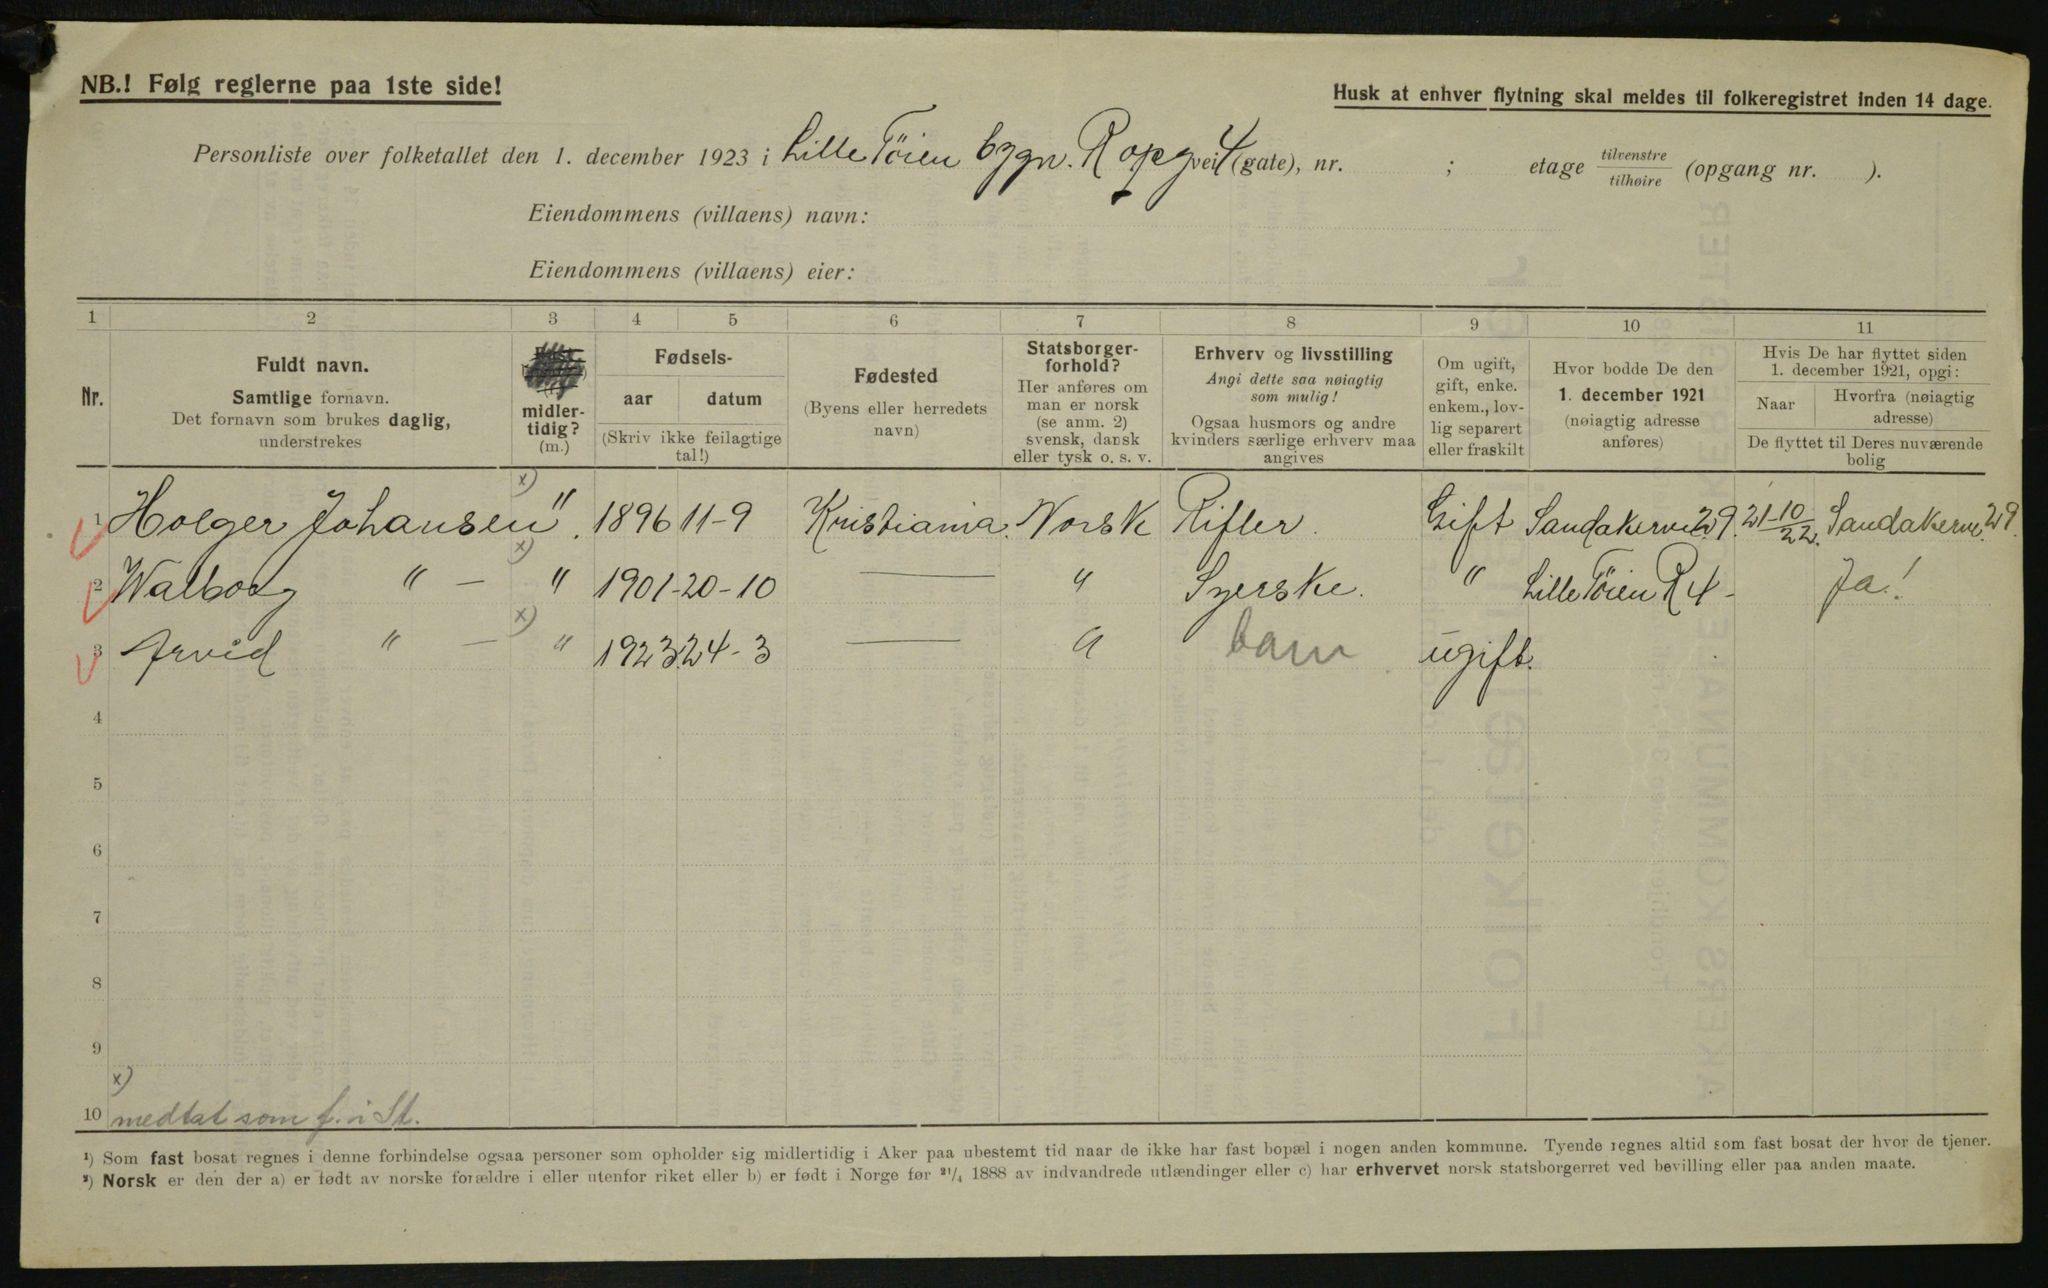 NB.! Følg reglerne paa 1ste side!
Husk at enhver flytning skal meldes til folkeregistret inden 14 dage.
Personliste over folketallet den 1. december 1923 i Lille Töien bygn. R opg 4 vei (gate), nr. ; etage tilvenstre / tilhøire (opgang nr. ).
Eiendommens (villaens) navn:
Eiendommens (villaens) eier:
1 2 3 4 5 6 7 8 9 10 11
Nr.
Fuldt navn.
Samtlige fornavn.
Det fornavn som brukes daglig, understrekes
midler-
tidig?
(m.)
Fødsels-
aar datum
(Skriv ikke feilagtige tal!)
Fødested
(Byens eller herredets navn)
Statsborger-
forhold?
Her anføres om
man er norsk
(se anm. 2)
svensk, dansk
eller tysk o. s. v.
Erhverv og livsstilling
Angi dette saa nøiagtig
som mulig!
Ogsaa husmors og andre
kvinders særlige erhverv maa
angives
Om ugift,
gift, enke.
enkem., lov-
lig separert
eller fraskilt
Hvor bodde De den
1. december 1921
(nøiagtig adresse
anføres)
Hvis De har flyttet siden
1. december 1921, opgi:
Naar
Hvorfra (nøiagtig
adresse)
De flyttet til Deres nuværende
bolig
1 Holger Johansen x) " 1896 11-9 Kristiania. Norsk Rifler. Gift Sandakervei 29. 21-10/22. Sandakervei 29.
2 Walborg " — x) " 1901-20-10 — " Syerske. " Lille Töien R 4 - Ja!
3 Arvid " — x) " 1923 24-3 — " barn ugift.
4
5
6
7
8
9
x)
10 medtat som f. i St.
¹) Som fast bosat regnes i denne forbindelse ogsaa personer som opholder sig midlertidig i Aker paa ubestemt tid naar de ikke har fast bopæl i nogen anden kommune. Tyende regnes altid som fast bosat der hvor de tjener.
²) Norsk er den der a) er født av norske forældre i eller utenfor riket eller b) er født i Norge før ²¹/₄ 1888 av indvandrede utlændinger eller c) har erhvervet norsk statsborgerret ved bevilling eller paa anden maate.